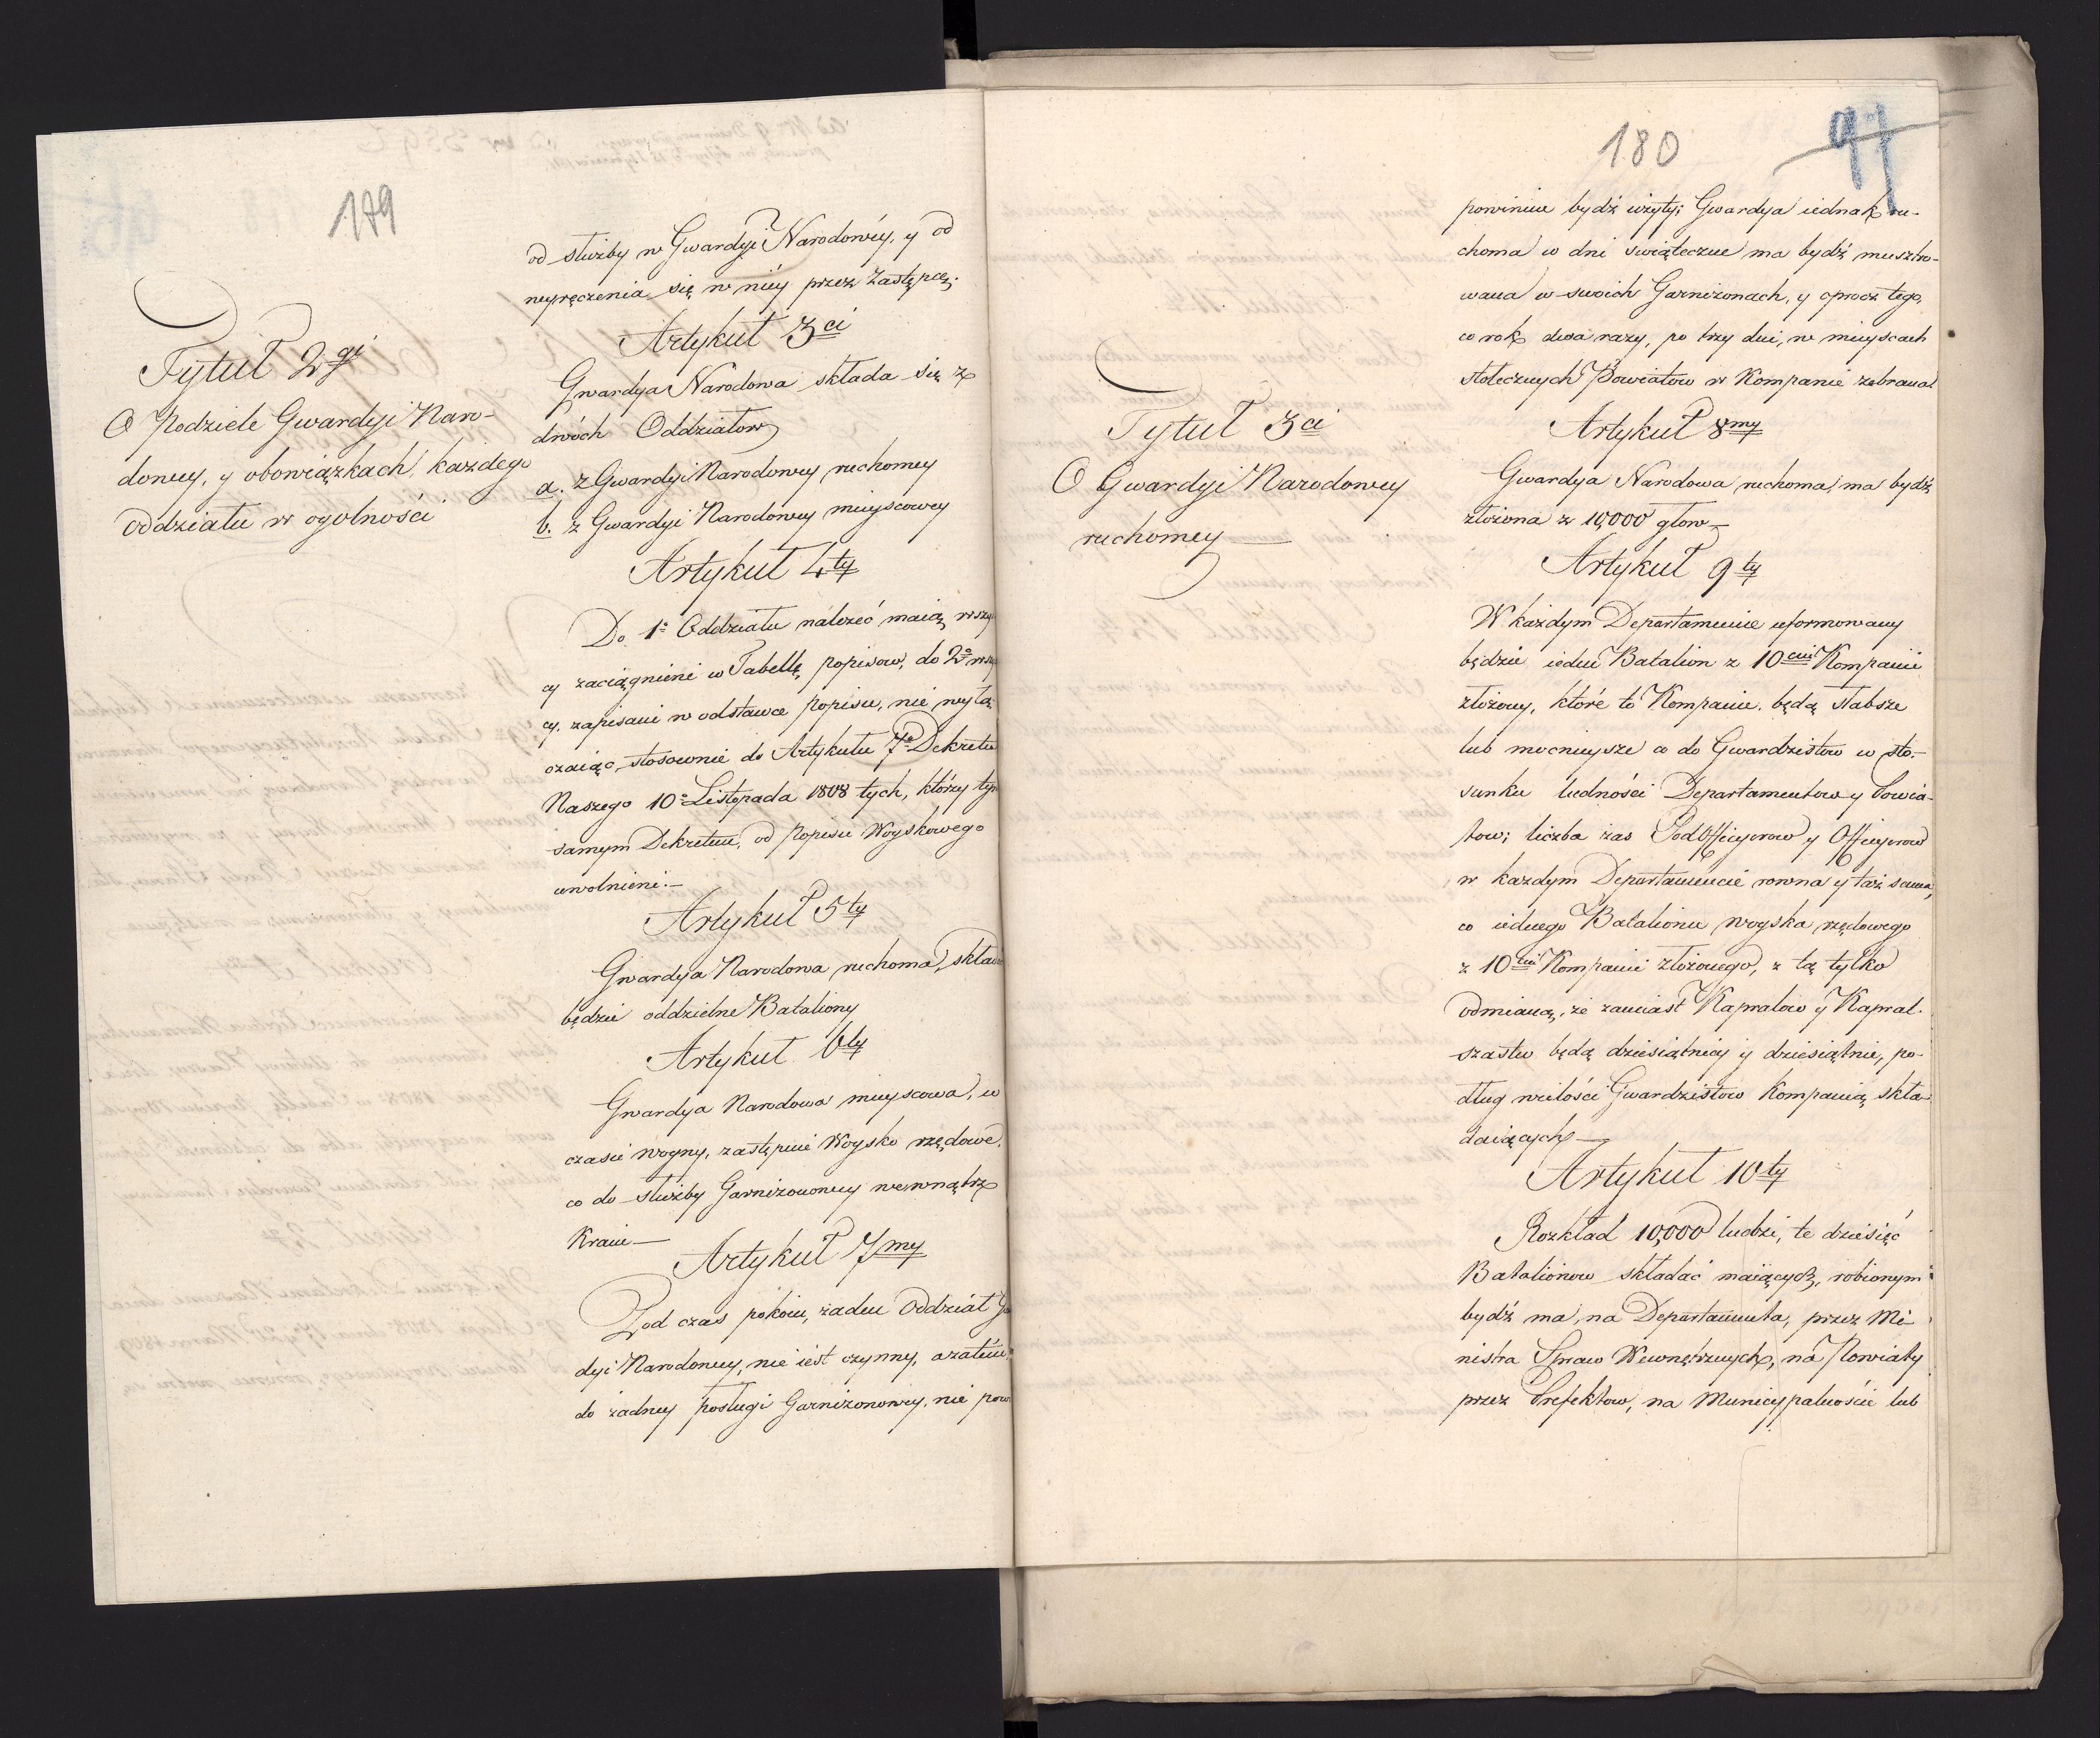 179
od służby w Gwardyi Narodowéy, y od
wyręczenia się w niéy przez Zastępcę.
Tytuł 2gi
O Podziele Gwardyi Naro-
dowey, y obowiązkach każdego
oddziału w ogolności
Artykuł 3ci
Gwardya Narodowa składa się z
dwóch Oddziałow
a. z Gwardyi Narodowey ruchomey
b. z Gwardyi Narodowey mieyscowey
Artykuł 4ty
Do 1o Oddziału należeć maią wszy
cy zaciągnieni w Tabellę popisow, do 2o wszy
cy zapisani w odstawce popisu, nie wyłą
czaiąc stosownie do Artykułu 7o Dekretu
Naszego 10o Listopada 1808 tych, którzy tym
samym Dekretem, od popisu Woyskowego
uwolnieni.—
Artykuł 5ty
Gwardya Narodowa ruchoma, składa
będzie oddzielne Bataliony
Artykuł 6ty
Gwardya Narodowa mieyscowa, w
czasie woyny, zastępuie Woysko rzędowe,
co do służby Garnizonowey wewnątrz
Kraiu—
Artykuł 7my
Pod czas pokoiu, żaden Oddział Gwa
dyi Narodowey, nie iest czynny, azatém
do żadney posługi Garnizonowey, nie pow
180
97
powinien bydź użyty; Gwardya iednak ru-
choma w dni swiąteczne ma bydź musztro-
wana w swoich Garnizonach, y oprocz tego,
co rok dwa razy, po trzy dni, w mieyscach
stołecznych Powiatow w Kompanie zebrana.
Artykuł 8my
Gwardya Narodowa ruchoma, ma bydź
złożona z 10,000 głow—
Tytuł 3ci
O Gwardyi Narodowey
ruchomey—
Artykuł 9ty
W każdym Departamencie uformowany
będzie ieden Batalion z 10ciu Kompanii
złożony, które to Kompanie, będą słabsze
lub mocnieysze co do Gwardzistow w sto-
sunku ludności Departamentow y Powia-
tow; liczba zas Podofficyerow y Officyerow
w każdym Departamencie rowna y taż sama,
co iednego Batalionu woyska rzędowego
z 10ciu Kompanii złożonego, z tą tylko
odmianą, że zamiast Kapralow y Kapral-
szastw będą dziesiątnicy y dziesiątnie, po-
dług wielości Gwardzistow Kompanią skła-
daiących—
Artykuł 10ty
Rozkład 10,000 ludzi, te dziesięć
Batalionow składać maiących, robionym
bydź ma, na Departamenta, przez Mi-
nistra Spraw Wewnętrznych, na Powiaty
przez Prefektow, na Municypalnoście lub